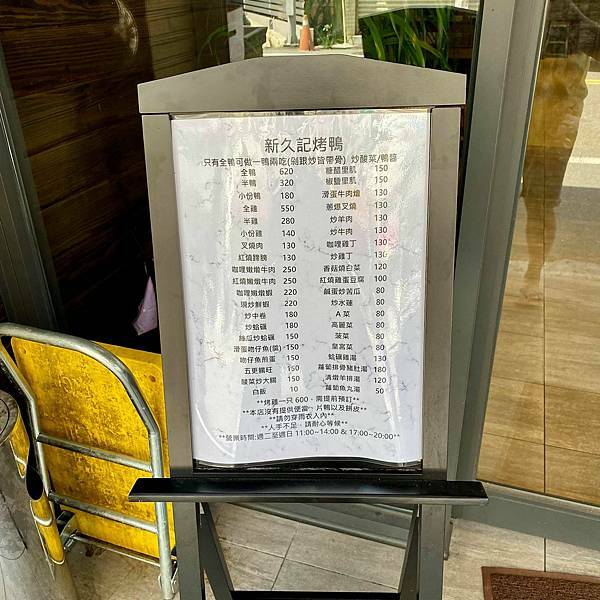 新久記烤鴨
只有全鴨可做一鴨兩吃(剁跟炒皆帶骨) 炒酸菜/鴨醬
全鴨 620
半鴨 320
小份鴨 180
全雞 550
半雞 280
小份雞 140
叉燒肉 130
紅燒蹄膀 130
咖哩嫩燉牛肉 250
紅燒嫩燉牛肉 250
咖哩嫩燉蝦 220
現炒鮮蝦 220
炒中卷 180
炒蛤蠣 180
絲瓜炒蛤蠣 150
滑蛋吻仔魚(菜) 150
吻仔魚煎蛋 150
五更腸旺 150
酸菜炒大腸 150
白飯 10
糖醋里肌 150
椒鹽里肌 150
滑蛋牛肉燴 130
蔥爆叉燒 130
炒羊肉 130
炒牛肉 130
咖哩雞丁 130
炒雞丁 130
香菇燒白菜 120
紅燒雞蛋豆腐 100
鹹蛋炒苦瓜 80
炒水蓮 80
A菜 80
高麗菜 80
菠菜 80
皇宮菜 80
蛤蠣雞湯 130
蘿蔔排骨豬肚湯 180
清燉羊排湯 120
蘿蔔魚丸湯 50
**烤雞一只 600，需提前預訂**
**本店沒有提供便當、片鴨以及餅皮**
**請勿穿雨衣入內**
**人手不足，請耐心等候**
**營業時間:週二至週日 11:00~14:00 & 17:00~20:00**